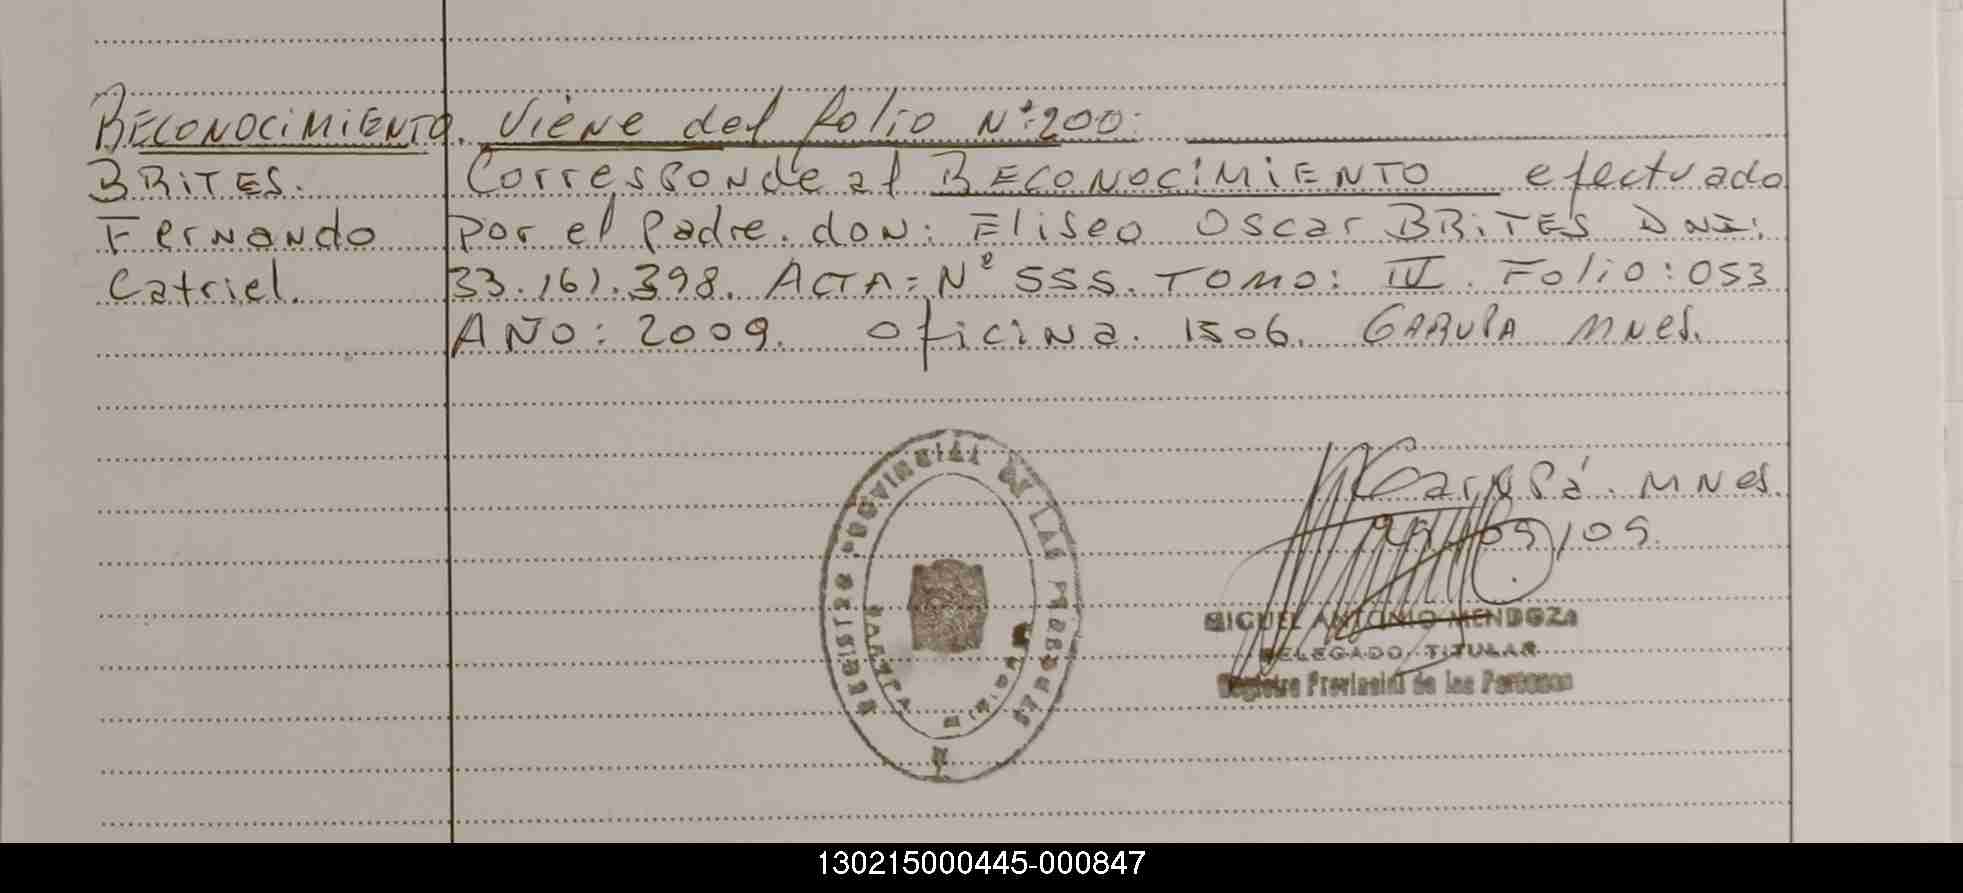 RECONOCIMIENTO. Viene del folio Nº:200:
BRITES. Corresponde al RECONOCIMIENTO efectuado
Fernando por el Padre. don: Eliseo Oscar BRITES DNI:
Catriel. 33.161.398. ACTA=Nº 555. TOMO: IV. Folio:053
AÑO: 2009. Oficina. 1506. GARUPA MNES.
REGISTRO PROVINCIAL DE LAS PERSONAS
GARUPA
MISIONES
Garupá. MNES.
09/09.
MIGUEL ANTONIO MENDOZA
DELEGADO TITULAR
Registro Provincial de las Personas
130215000445-000847